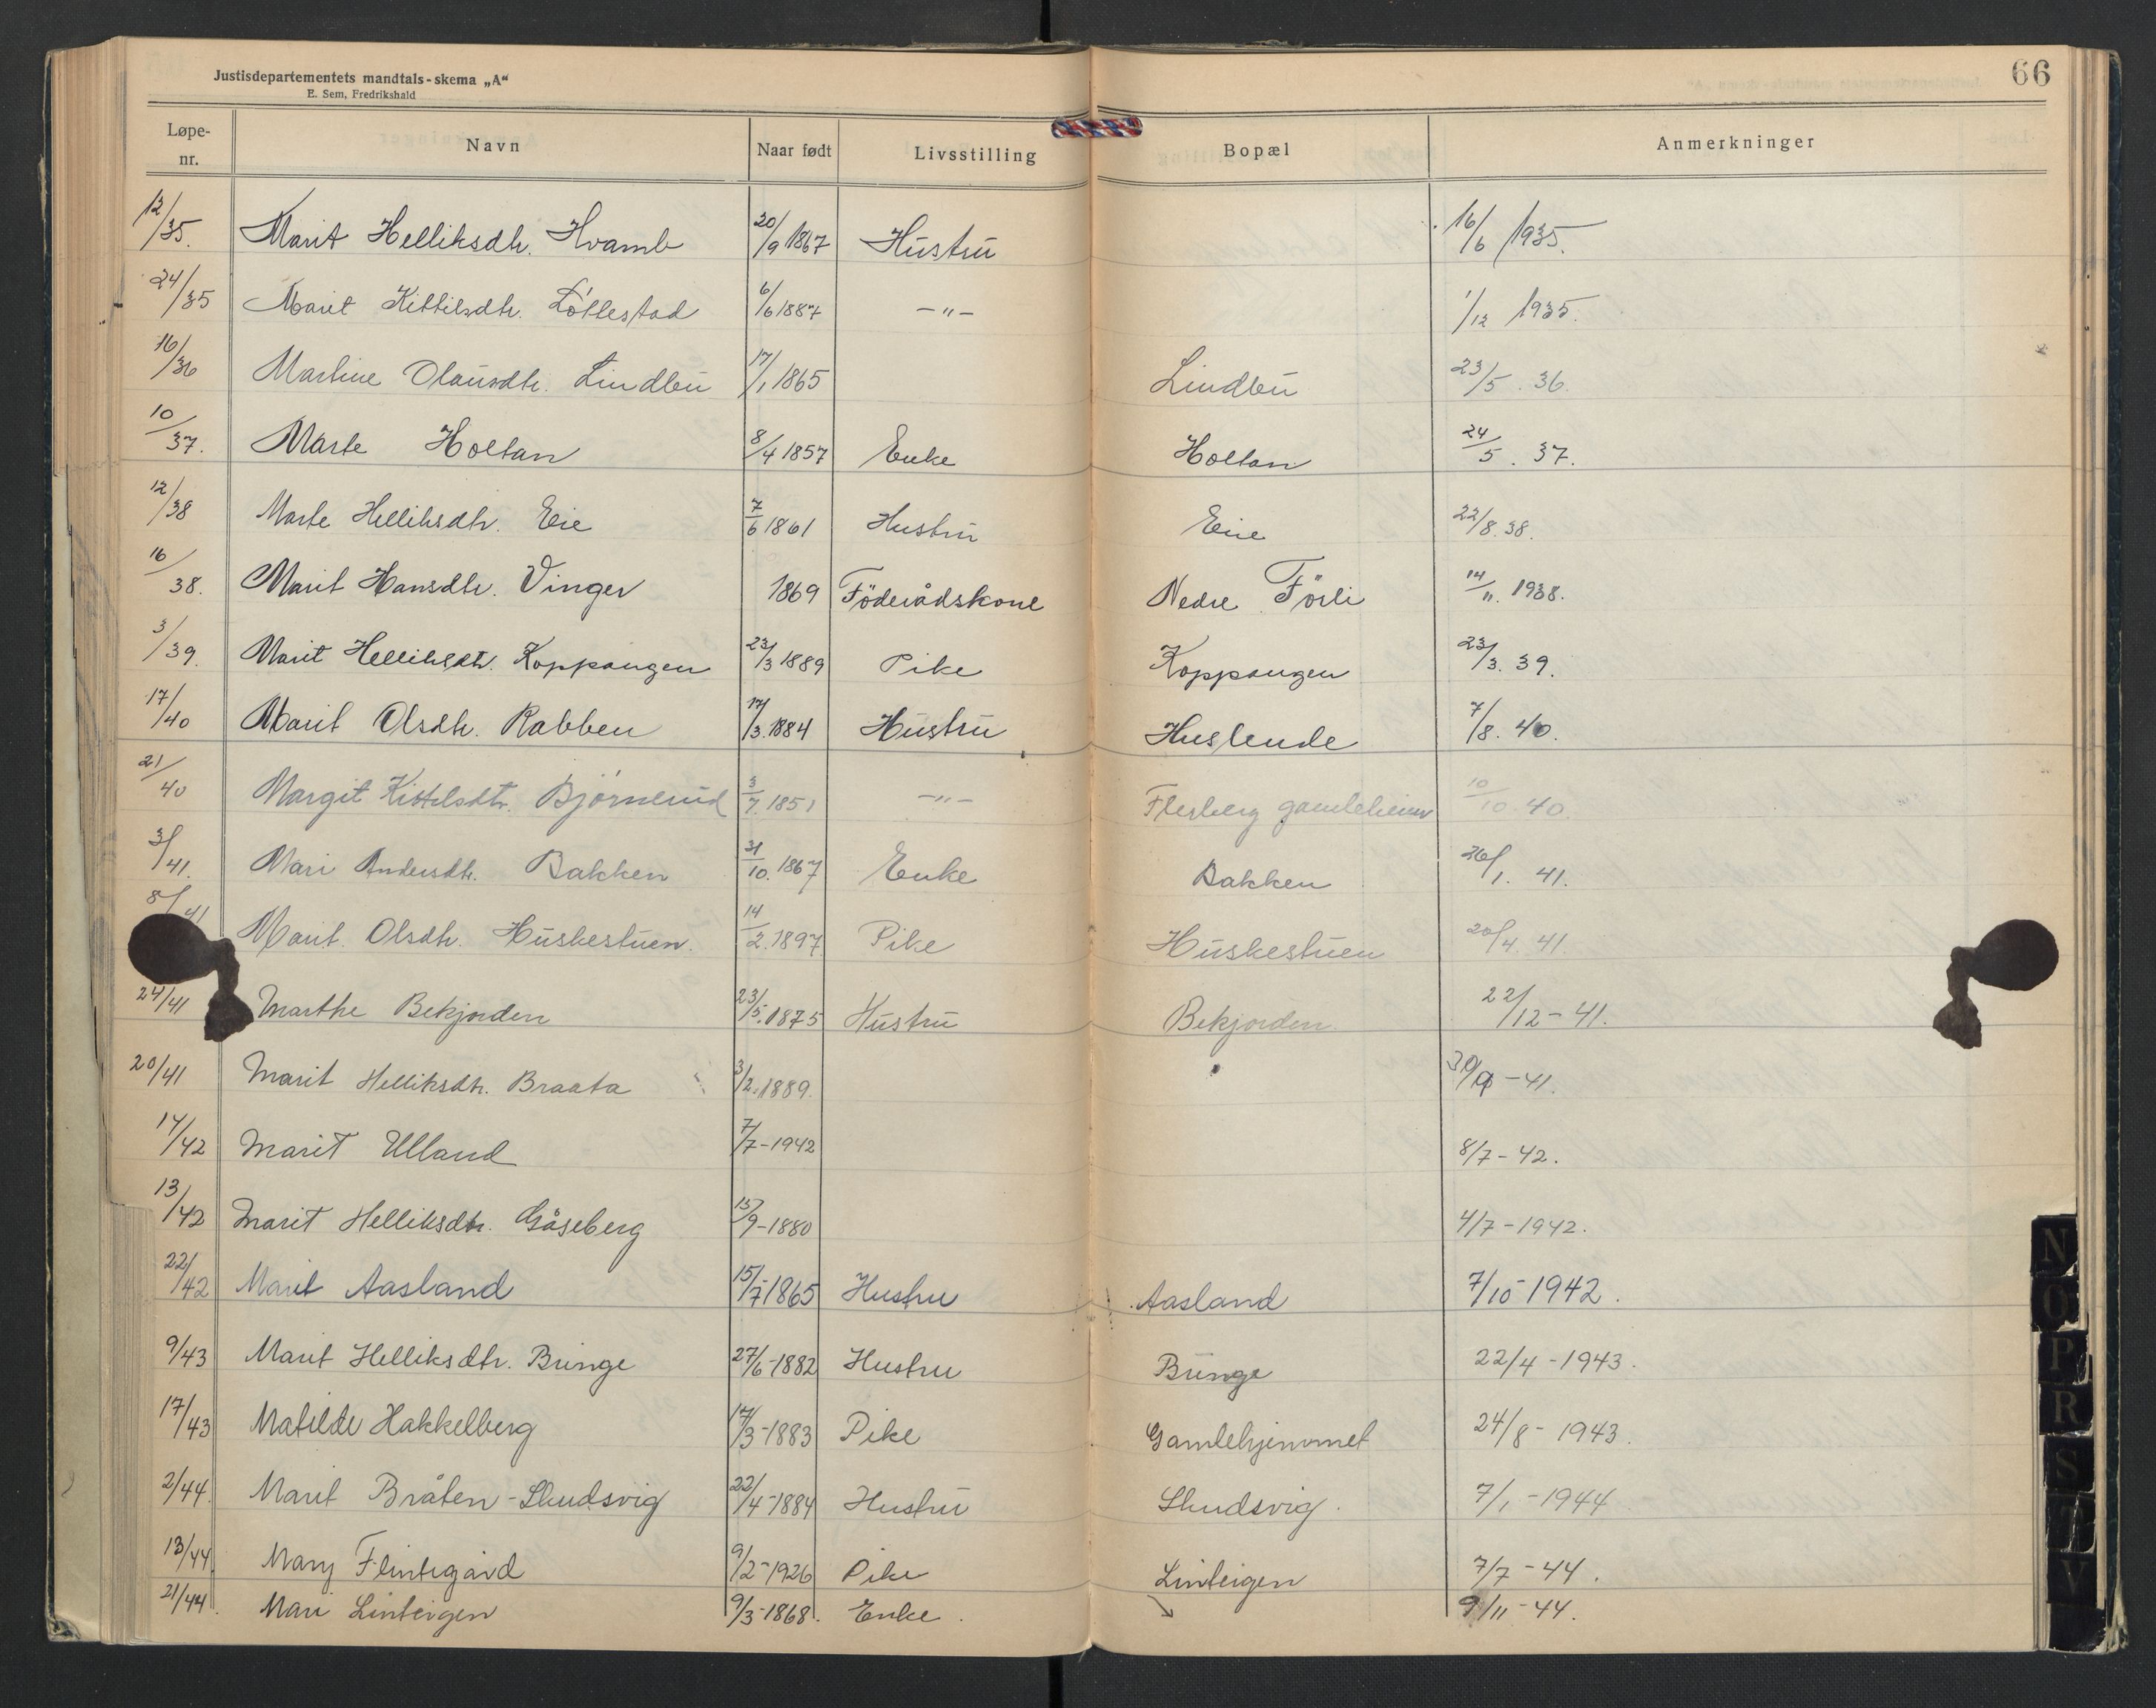 Justisdepartementets mandtals-skema „A“
E. Sem, Fredrikshald
66
Løpe-nr. Navn Naar født Livsstilling Bopæl Anmerkninger
12/35. Marit Helliksdtr. Hvamb 20/9 1867 Hustru 16/6 1935.
24/35 Marit Kittilsdtr. Løtlestad 6/6 1887 -"- 1/12 1935.
16/36 Martine Olausdtr. Lindbu 17/1 1865 Lindbu 23/5. 36.
10/37. Marte Holtan 8/4 1857 Enke Holtan 24/5. 37.
12/38 Marte Helliksdtr. Eie 7/6 1861 Hustru Eie 22/8. 38.
16/38. Marit Hansdtr. Vinger 1869 Föderådskone Nedre Förli 14/11. 1938.
3/39. Marit Helliksdtr. Koppangen 23/3 1889 Pike Koppangen 23/3. 39.
17/40 Marit Olsdtr. Rabben 17/3. 1884 Hustru Huslende 7/8. 40.
21/40 Margit Kittelsdtr. Bjørnerud 3/7. 1851 -"- Flesberg gamleheim 10/10. 40.
3/41. Mari Andersdtr. Bakken 31/10. 1867 Enke Bakken 26/1. 41.
8/41 Marit. Olsdtr. Huskestuen. 14/2. 1897 Pike Huskestuen 20/4. 41.
24/41 Marthe Bekjorden 23/5. 1875 Hustru Bekjorden 22/12 - 41.
20/41 Marit Helliksdtr. Braata 3/2. 1889. 30/9 - 41.
14/42 Marit Ulland 7/7 - 1942 8/7 - 42.
13/42 Marit Helliksdtr. Gåseberg 15/9 - 1880 4/7 - 1942.
22/42 Marit Aasland 15/7 - 1865 Hustru Aasland 7/10 - 1942.
9/43 Marit Helliksdtr. Bringe 27/6 - 1882 Hustru Bringe 22/4 - 1943.
17/43 Matilde Hakkelberg 17/3 - 1883 Pike Gamlehjemmet 24/8 - 1943.
2/44. Marit Bråten - Skudsvig 22/4 - 1884 Hustru Skudsvig. 7/1 - 1944
13/44 Mary Flintegård 9/2 - 1926 Pike Linteigen 7/7 - 44.
21/44. Mari Linteigen 9/3 - 1868. Enke. 9/11 - 44.
N
O
P
R
S
T
V